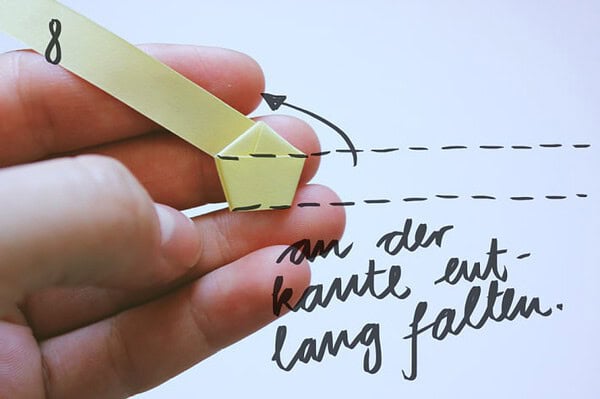 8
an der
kante ent-
lang falten.